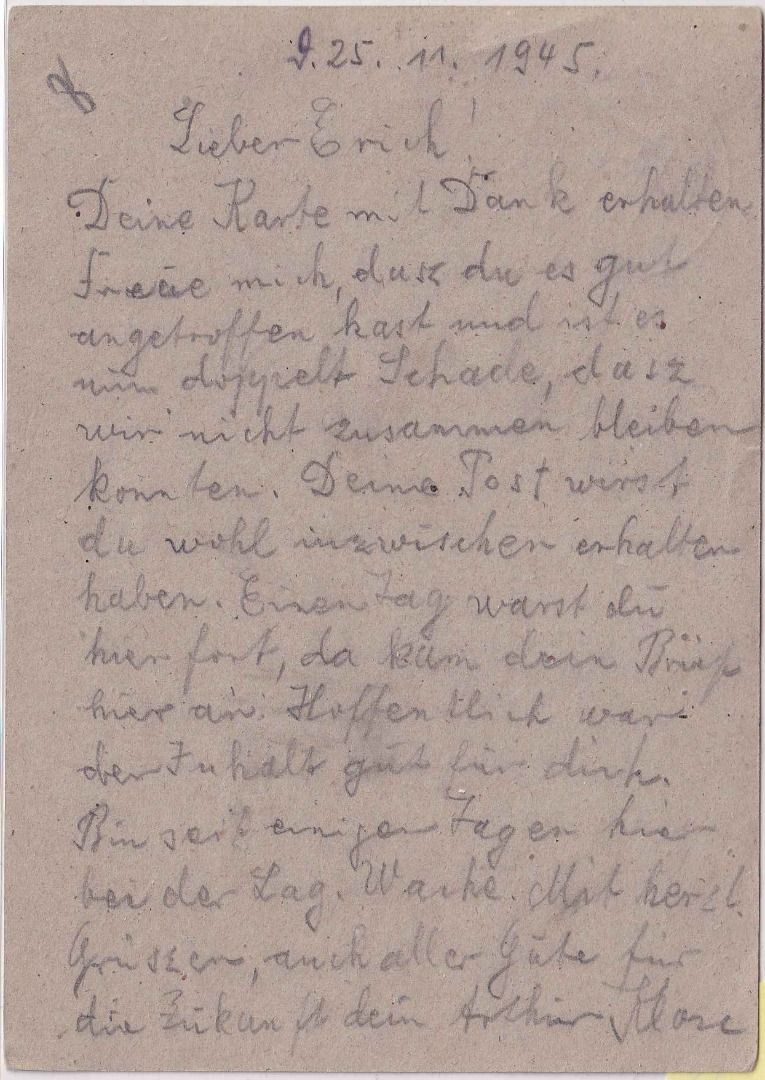 d. 25. 11. 1945.
Lieber Erich!
Deine Karte mit Dank erhalten.
Freue mich, dasz du es gut
angetroffen hast und ist es
nun doppelt Schade, dasz
wir nicht zusammen bleiben
konnten. Deine Post wirst
du wohl inzwischen erhalten
haben. Einen Tag warst du
hier fort, da kam dein Brief
hier an. Hoffentlich war
der Inhalt gut für dich.
Bin seit einigen Tagen hier
bei der Lag. Wache. Mit herzl.
Grüszen, auch alles Gute für
die Zukunft dein Arthur Klose